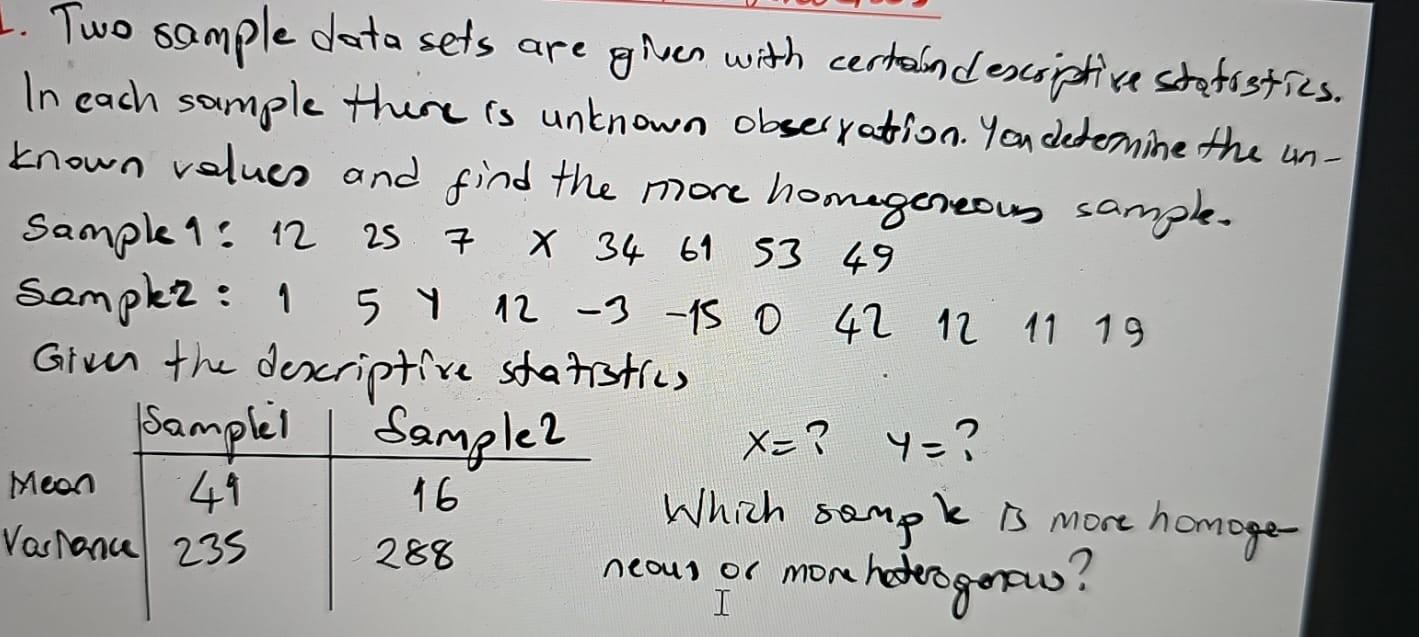 1. Two sample data sets are given with certain descriptive statistics.
In each sample there is unknown observation. You determine the un-
known values and find the more homogeneous sample.
Sample 1: 12 25 7 X 34 61 53 49
Sample 2: 1 5 Y 12 -3 -15 0 42 12 11 19
Given the descriptive statistics
Sample 1 Sample 2
Mean 41 16
Variance 235 288
X=? Y=?
Which sample is more homoge-
neous or more heterogenous?